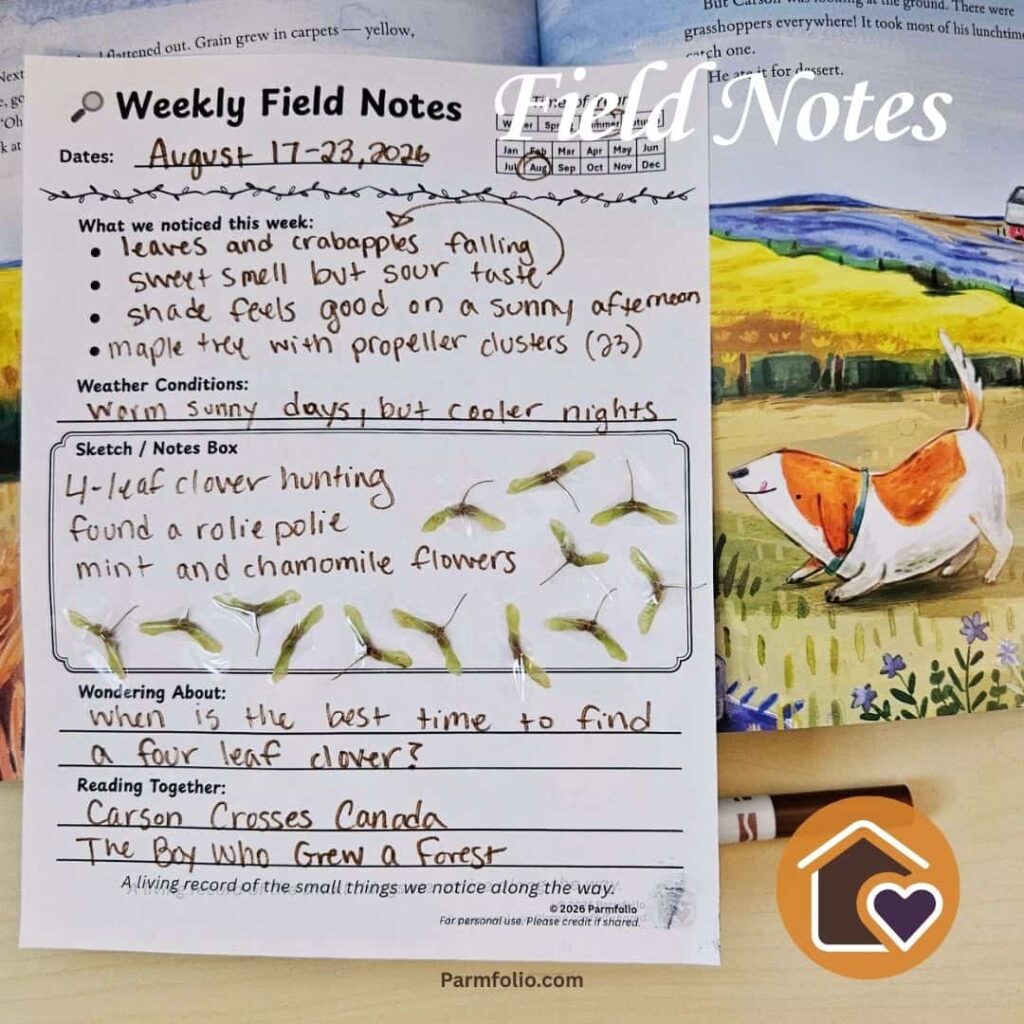 flattened out. Grain grew in carpets — yellow,
But Carson was looking at the ground. There were
grasshoppers everywhere! It took most of his lunchtime
catch one.
He ate it for dessert.
Field Notes
Weekly Field Notes
Time of Year
Winter Spring Summer Autumn
Jan Feb Mar Apr May Jun
Jul Aug Sep Oct Nov Dec
Dates: August 17-23, 2026
What we noticed this week:
• leaves and crabapples falling
• sweet smell but sour taste
• shade feels good on a sunny afternoon
• maple tree with propeller clusters (23)
Weather Conditions:
warm sunny days, but cooler nights
Sketch / Notes Box
4-leaf clover hunting
found a rolie polie
mint and chamomile flowers
Wondering About:
when is the best time to find
a four leaf clover?
Reading Together:
Carson Crosses Canada
The Boy Who Grew a Forest
A living record of the small things we notice along the way.
© 2026 Parmfolio
For personal use. Please credit if shared.
Parmfolio.com